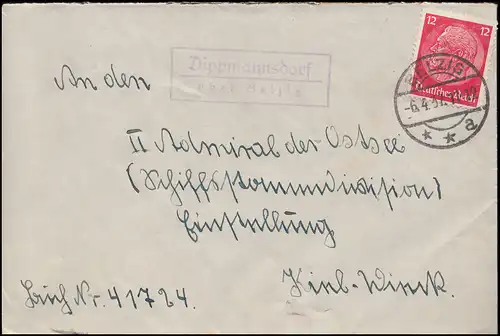 12 12
Deutsches Reich
BELZIG
-6.4.37
a
Dippmannsdorf
über Belzig
An den
II Admiral der Ostsee
(Schiffsstammdivision)
Einstellung
Kiel-Wieck.
Buch Nr. 41724.